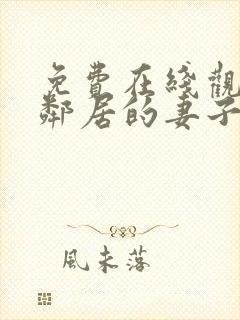 免費在綫觀
鄰居的妻子
風未落